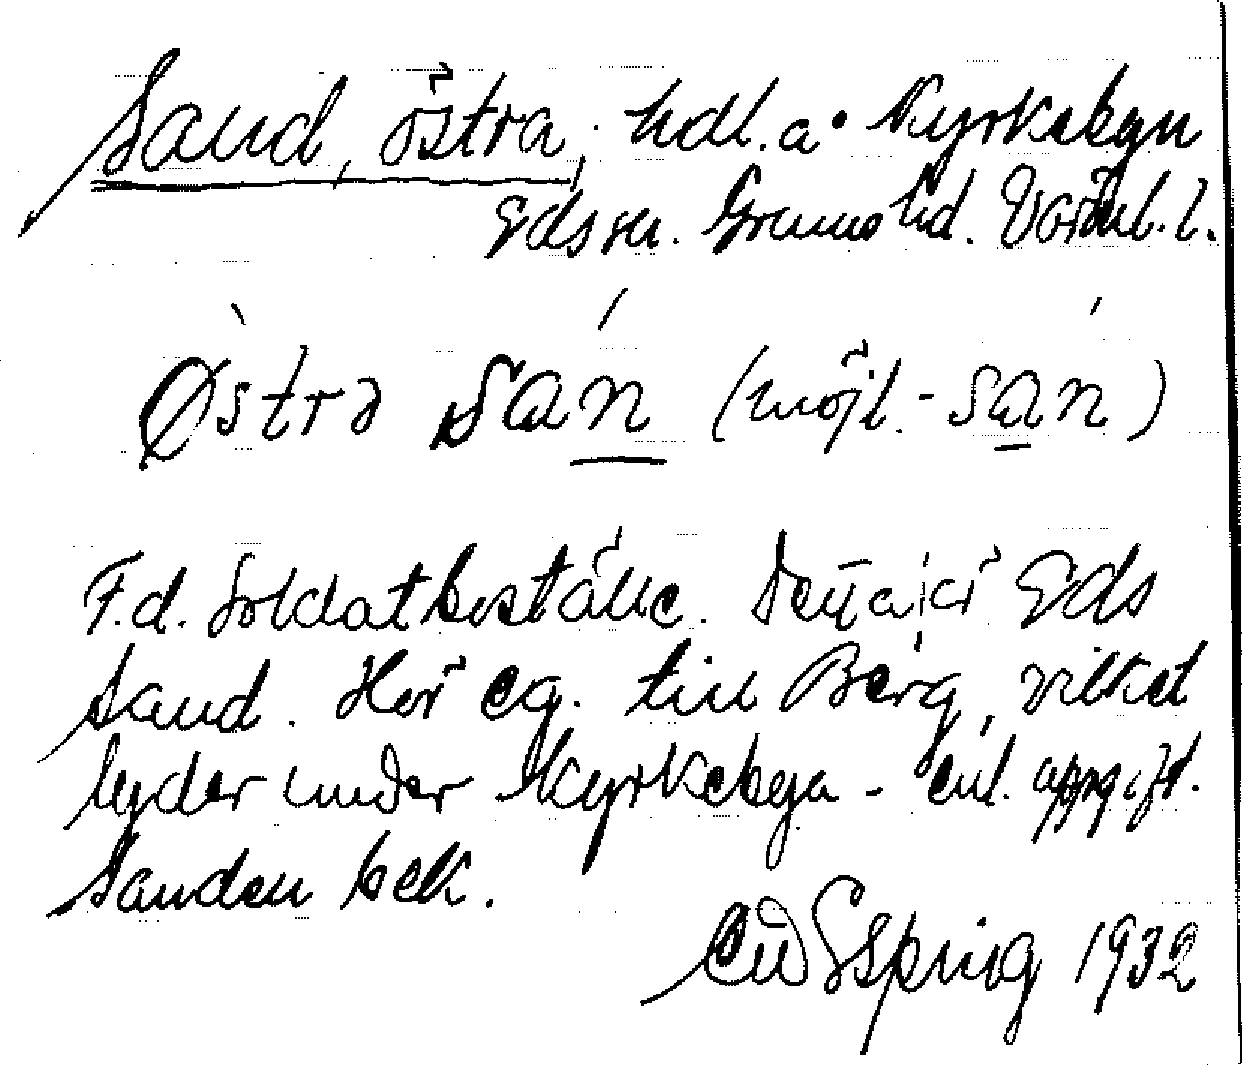 Sand, östra, hdl. a. Kyrkebyn
Eds sn. Grums hd. Värml. l.
Østrə san (möjl. - san)
F.d. Soldatboställe. Detta är Eds
Sand. Hör eg. till Berg, vilket
lyder under Kyrkebyn - enl. uppgift.
Sanden bek.
1932